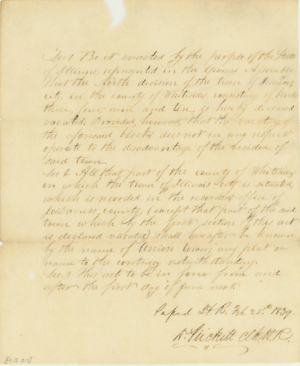 Sec 1 Be it enacted by the people of the State
of Illinois represented in the General Assembly
that the north division of the town of Illinois
city in the county of Whiteside consisting of blocks
three, four, nine and ten, is hereby declared
vacated. Provided, however, that the vacating of
the aforesaid blocks does not in any respect
operate to the disadvantage of the residue of
said town.
Sec 2 All that part of the county of Whiteside
in which the town of Illinois city is situated
which is recorded in the recorder's office of
county, (except that part of the said
town which by the first section of this act
is declared vacated) shall hereafter be known
by the name of Union Grove, any plat or
name to the contrary notwithstanding.
Sec 3 this act to be in force from and
after the first day of June next.
Passed H. R. Feb 25th 1839
D. Prickett Clk H. R.